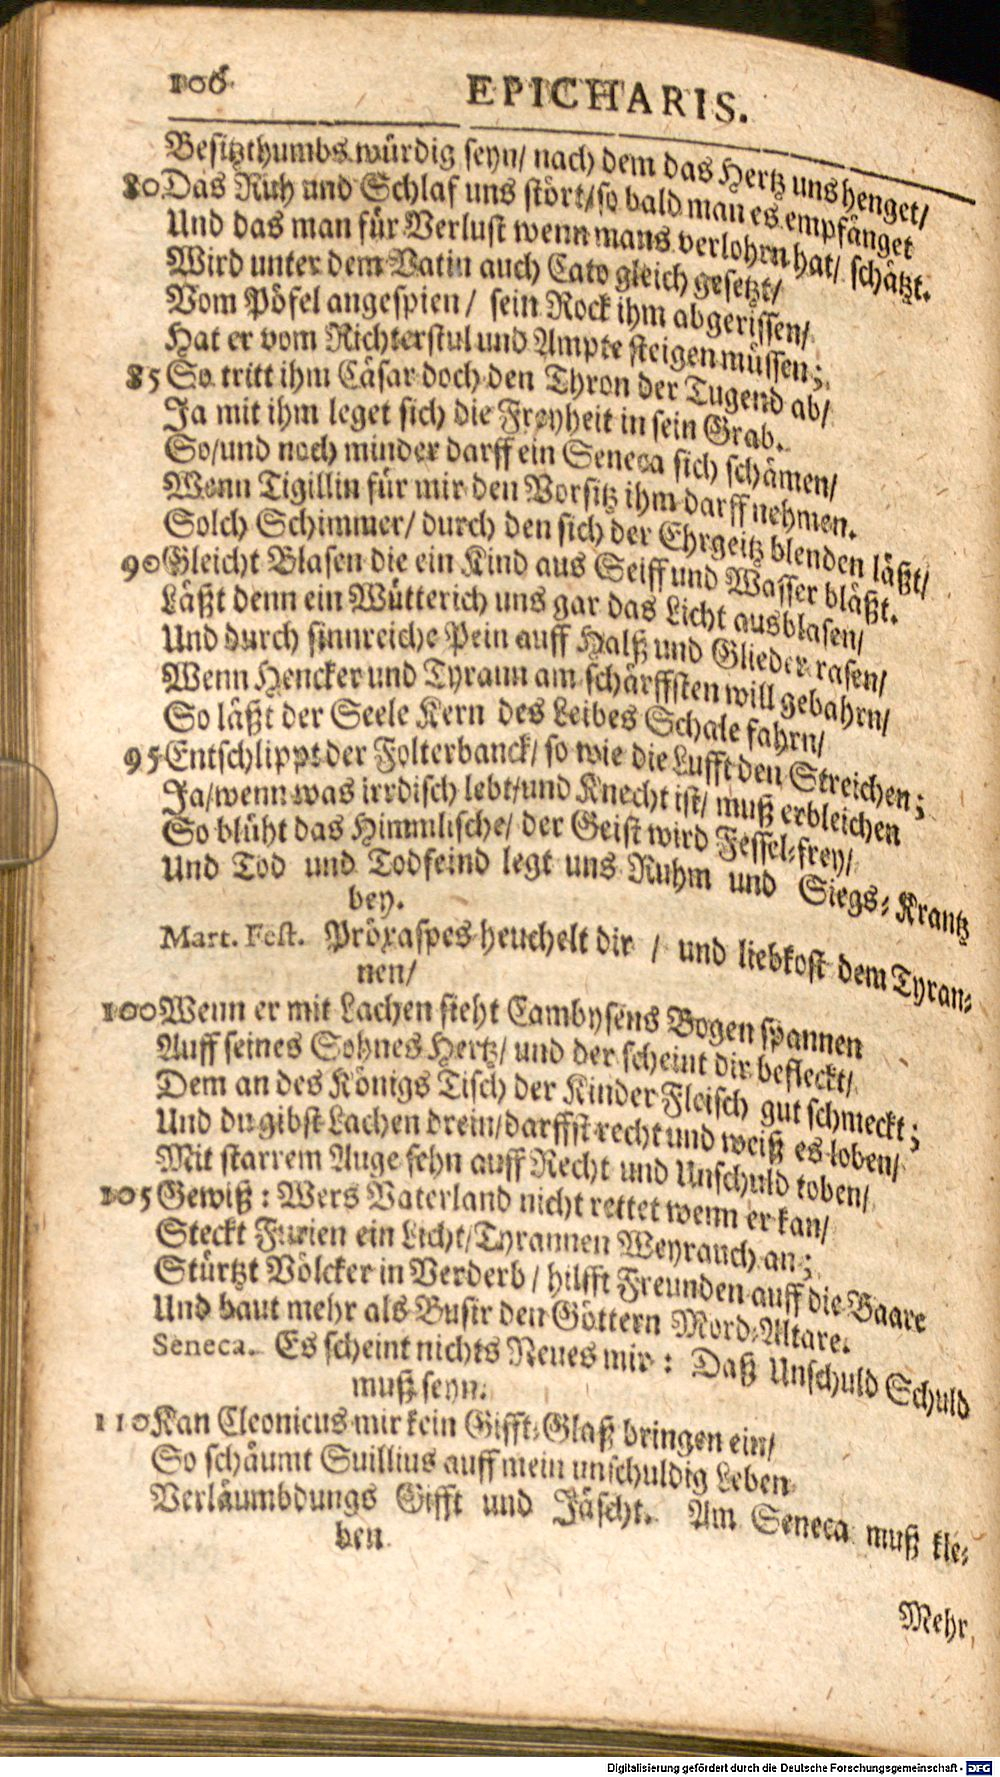 106 EPICHARIS.
Besitzthumbs würdig seyn/ nach dem das Hertz uns henget/
80 Das Ruh und Schlaf uns stört/ so bald man es empfänget
Und das man für Verlust wenn mans verlohrn hat/ schätzt.
Wird unter dem Vatin auch Cato gleich gesetzt/
Vom Pöfel angespien/ sein Rock ihm abgerissen/
Hat er vom Richterstul und Ampte steigen müssen;
85 So tritt ihm Cäsar doch den Thron der Tugend ab/
Ja mit ihm leget sich die Freyheit in sein Grab.
So/und noch minder darff ein Seneca sich schämen/
Wenn Tigillin für mir den Vorsitz ihm darff nehmen.
Solch Schimmer/ durch den sich der Ehrgeitz blenden läßt/
90 Gleicht Blasen die ein Kind aus Seiff und Wasser bläßt.
Läßt denn ein Wütterich uns gar das Licht ausblasen/
Und durch sinnreiche Pein auff Halß und Glieder rasen/
Wenn Hencker und Tyrann am schärffsten will gebahrn/
So läßt der Seele Kern des Leibes Schale fahrn/
95 Entschlippt der Folterbanck/ so wie die Lufft den Streichen;
Ja/wenn was irrdisch lebt/und Knecht ist/ muß erbleichen
So blüht das Himmlische/ der Geist wird Fessel-frey/
Und Tod und Todfeind legt uns Ruhm und Siegs-Krantz
bey.
Mart. Fest. Pröxaspes heuchelt dir / und liebkost dem Tyran-
nen/
100 Wenn er mit Lachen sieht Cambysens Bogen spannen
Auff seines Sohnes Hertz/ und der scheint dir befleckt/
Dem an des Königs Tisch der Kinder Fleisch gut schmeckt;
Und du gibst Lachen drein/darffst recht und weiß es loben/
Mit starrem Auge sehn auff Recht und Unschuld toben/
105 Gewiß: Wers Vaterland nicht rettet wenn er kan/
Steckt Furien ein Licht/Tyrannen Weyrauch an;
Stürtzt Völcker in Verderb/ hilfft Freunden auff die Baare
Und baut mehr als Busir den Göttern Mord-Altare.
Seneca. Es scheint nichts Neues mir: Daß Unschuld Schuld
muß seyn.
110 Kan Cleonicus mir kein Gifft-Glaß bringen ein/
So schäumt Suillius auff mein unschuldig Leben
Verläumbdungs Gifft und Jäscht. Am Seneca muß kle-
ben
Mehr,
Digitalisierung gefördert durch die Deutsche Forschungsgemeinschaft - DFG